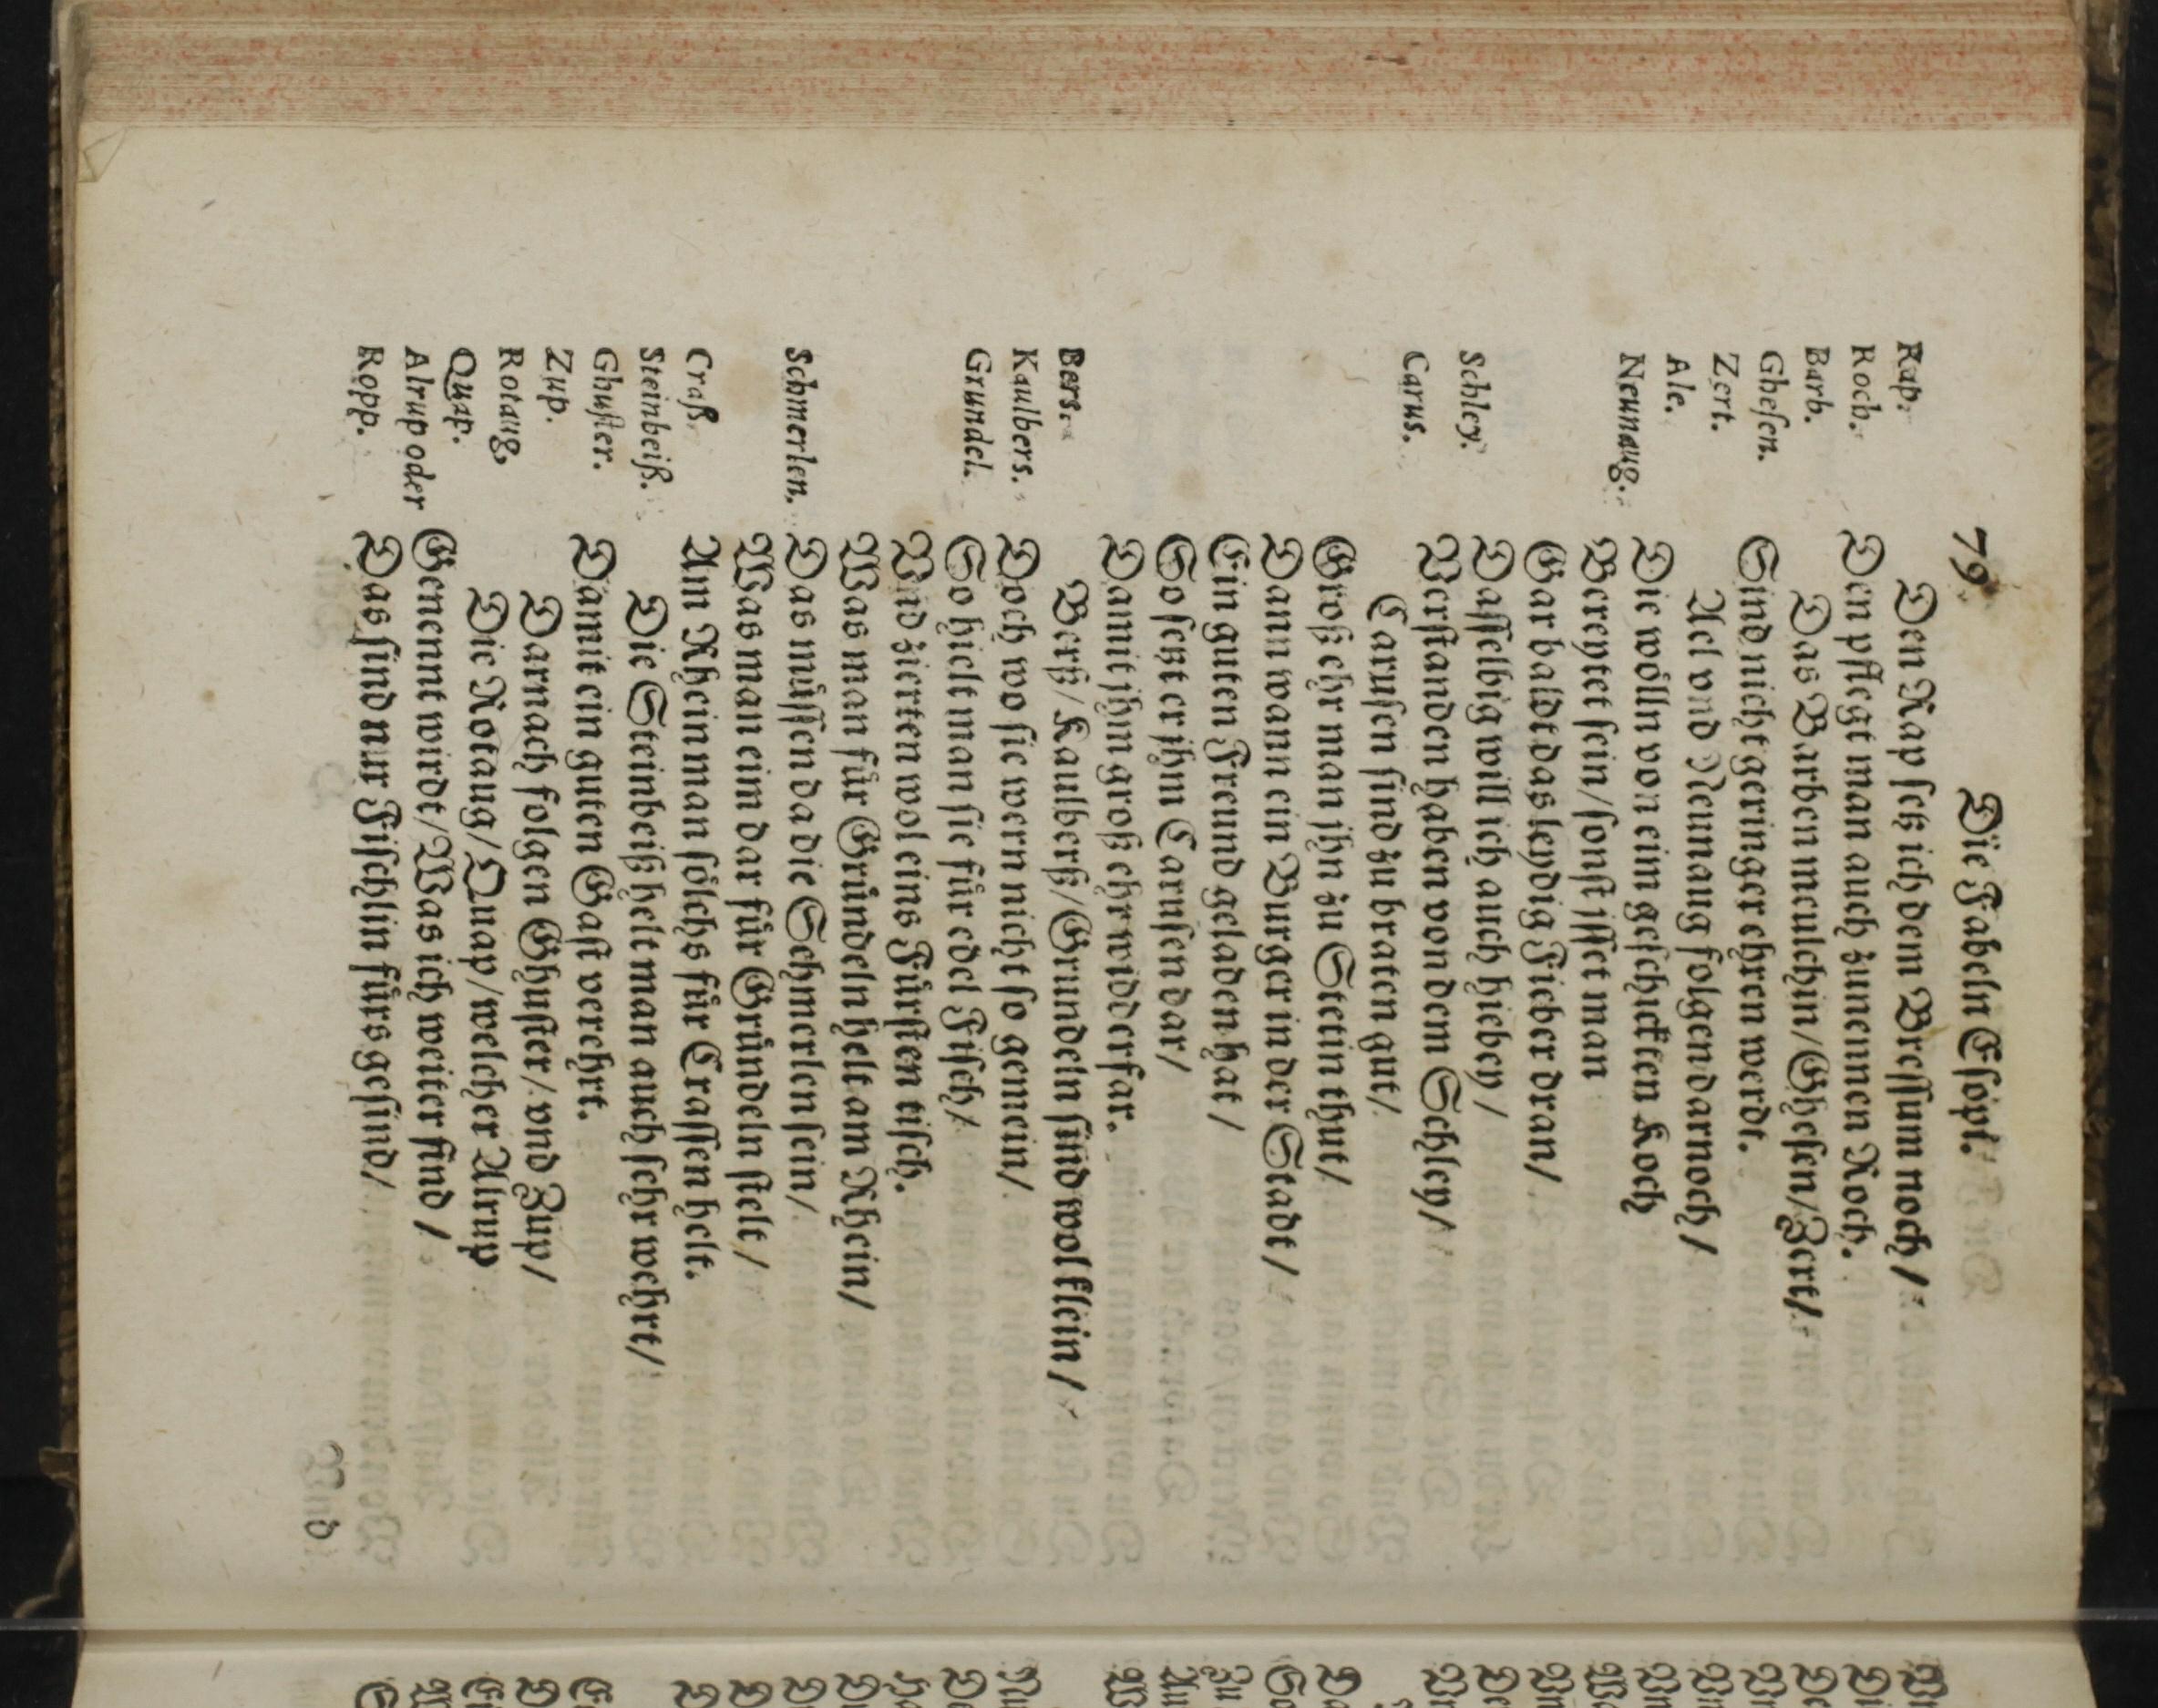 79
Die Fabeln Esopi.
Rap.
Den Rap setz ich dem Bressum noch /
Roch.
Den pflegt man auch zunennen Roch.
Barb.
Das Barbenmeulchin / Ghesen / Zert /
Ghesen.
Sind nicht geringer ehren werdt.
Zert.
Ael vnd Neunaug folgen darnoch /
Ale.
Die wölln von eim geschickten Koch
Neunaug.
Bereytet sein / sonst isset man
Gar baldt das leydig Fieber dran /
Schley.
Dasselbig will ich auch hiebey /
Verstanden haben von dem Schley /
Carus.
Carusen sind zu braten gut /
Groß ehr man jhn zu Stetin thut /
Dann wann ein Burger in der Stadt /
Ein guten Freund geladen hat /
So setzt er jhm Carusen dar /
Damit jhm groß ehr widderfar.
Bers.
Berß / Kaulberß / Grundeln sind wol klein /
Kaulbers.
Doch wo sie wern nicht so gemein /
Grundel.
So hielt man sie für edel Fisch /
Vnd zierten wol eins Fürsten tisch.
Was man für Gründeln helt am Rhein /
Schmerlen.
Das müssen da die Schmerlen sein /
Was man eim dar für Gründeln stelt /
Craß.
Am Rhein man sölchs für Crassen helt.
Steinbeiß.
Die Steinbeiß helt man auch sehr wehrt /
Ghuster.
Damit ein guten Gast verehrt.
Zup.
Darnach folgen Ghuster / vnd Zup /
Rotaug,
Die Rotaug / Quap / welcher Alrup
Quap.
Genennt wirdt / Was ich weiter find /
Alrup oder
Ropp.
Das sind nur Fischlin fürs gesind /
Vnd